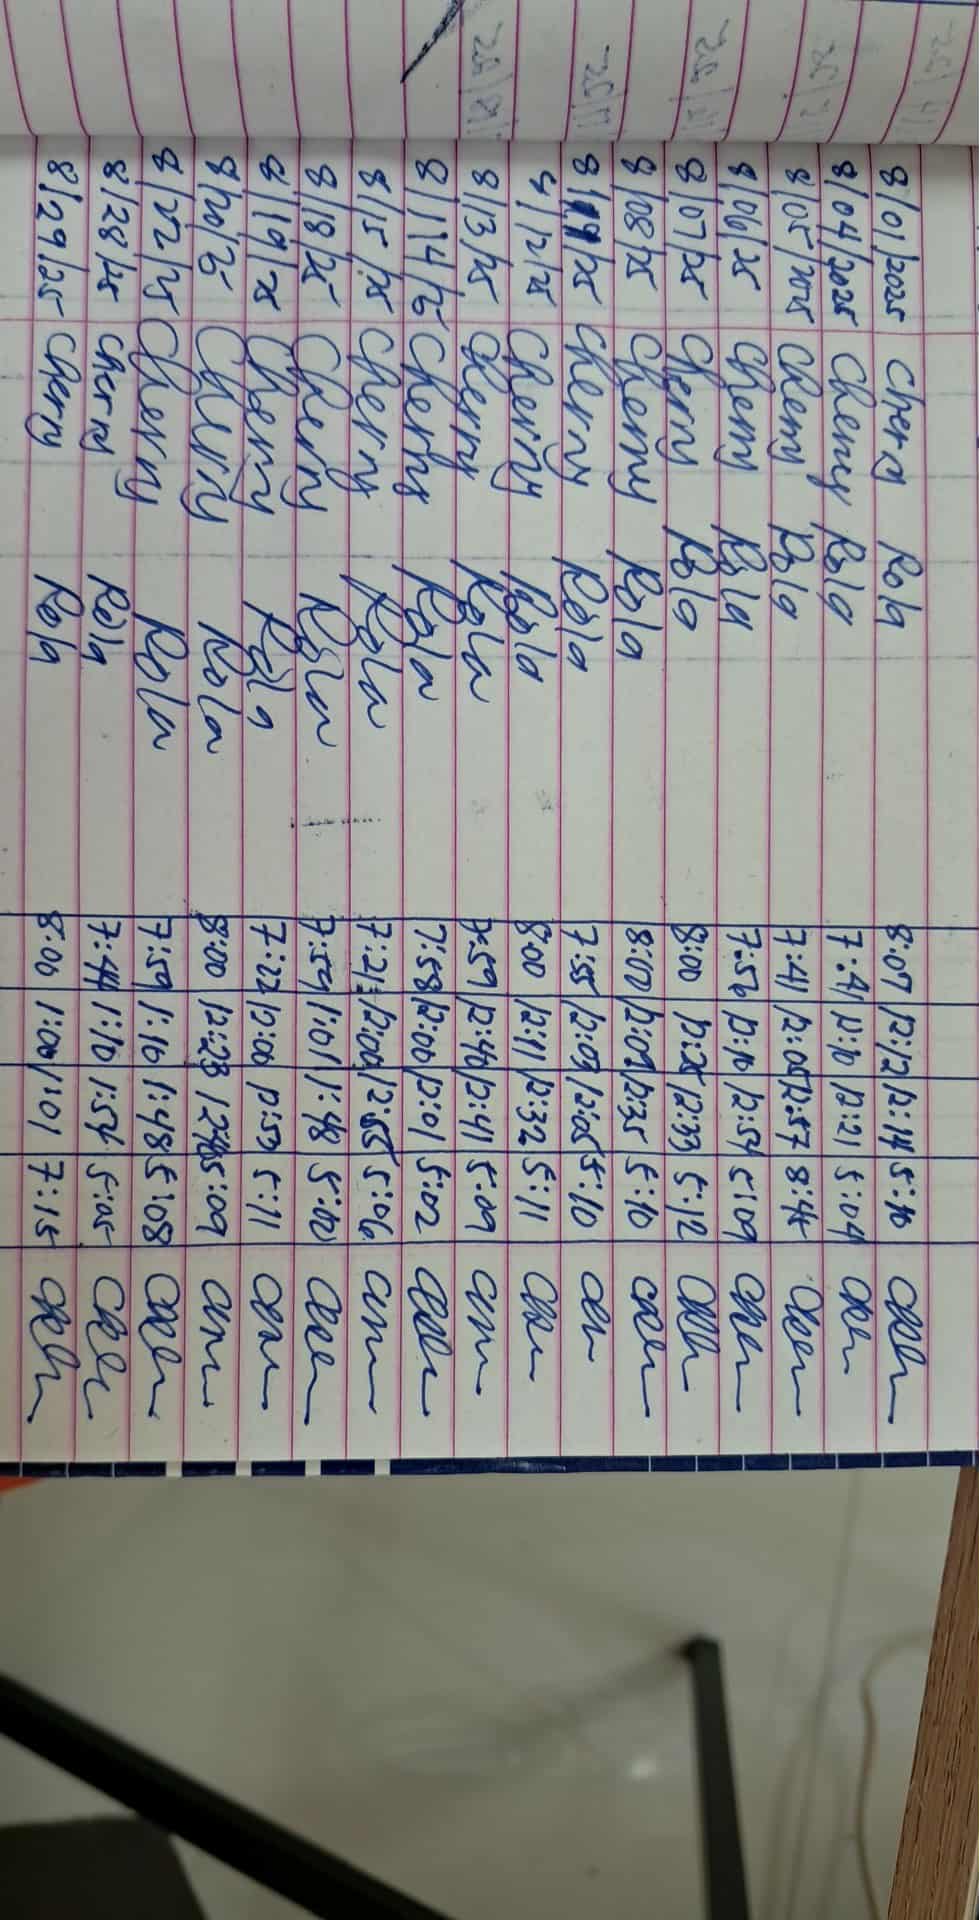 8/01/2025 Cherry Rola 8:07 12:12 12:14 5:10
8/04/2025 Cherry Rola 7:41 12:10 12:21 5:04
8/05/2025 Cherry Rola 7:41 12:05 12:57 8:45
8/06/25 Cherry Rola 7:56 12:10 12:54 5:09
8/07/25 Cherry Rola 8:00 12:28 12:33 5:12
8/08/25 Cherry Rola 8:00 12:09 12:35 5:10
8/11/25 Cherry Rola 7:55 12:09 12:05 5:10
8/12/25 Cherry Rola 8:00 12:11 12:32 5:11
8/13/25 Cherry Rola 7:59 12:40 12:41 5:09
8/14/25 Cherry Rola 7:58 12:00 12:01 5:02
8/15/25 Cherry Rola 7:21 12:00 12:55 5:06
8/18/25 Cherry Rola 7:59 1:01 1:48 5:00
8/19/25 Cherry Rola 7:22 12:00 12:53 5:11
8/20/25 Cherry Rola 8:00 12:23 5:09
8/22/25 Cherry Rola 7:59 1:10 1:48 5:08
8/28/25 Cherry Rola 7:44 1:10 1:54 5:05
8/29/25 Cherry Rola 8:00 1:00 1:01 7:15